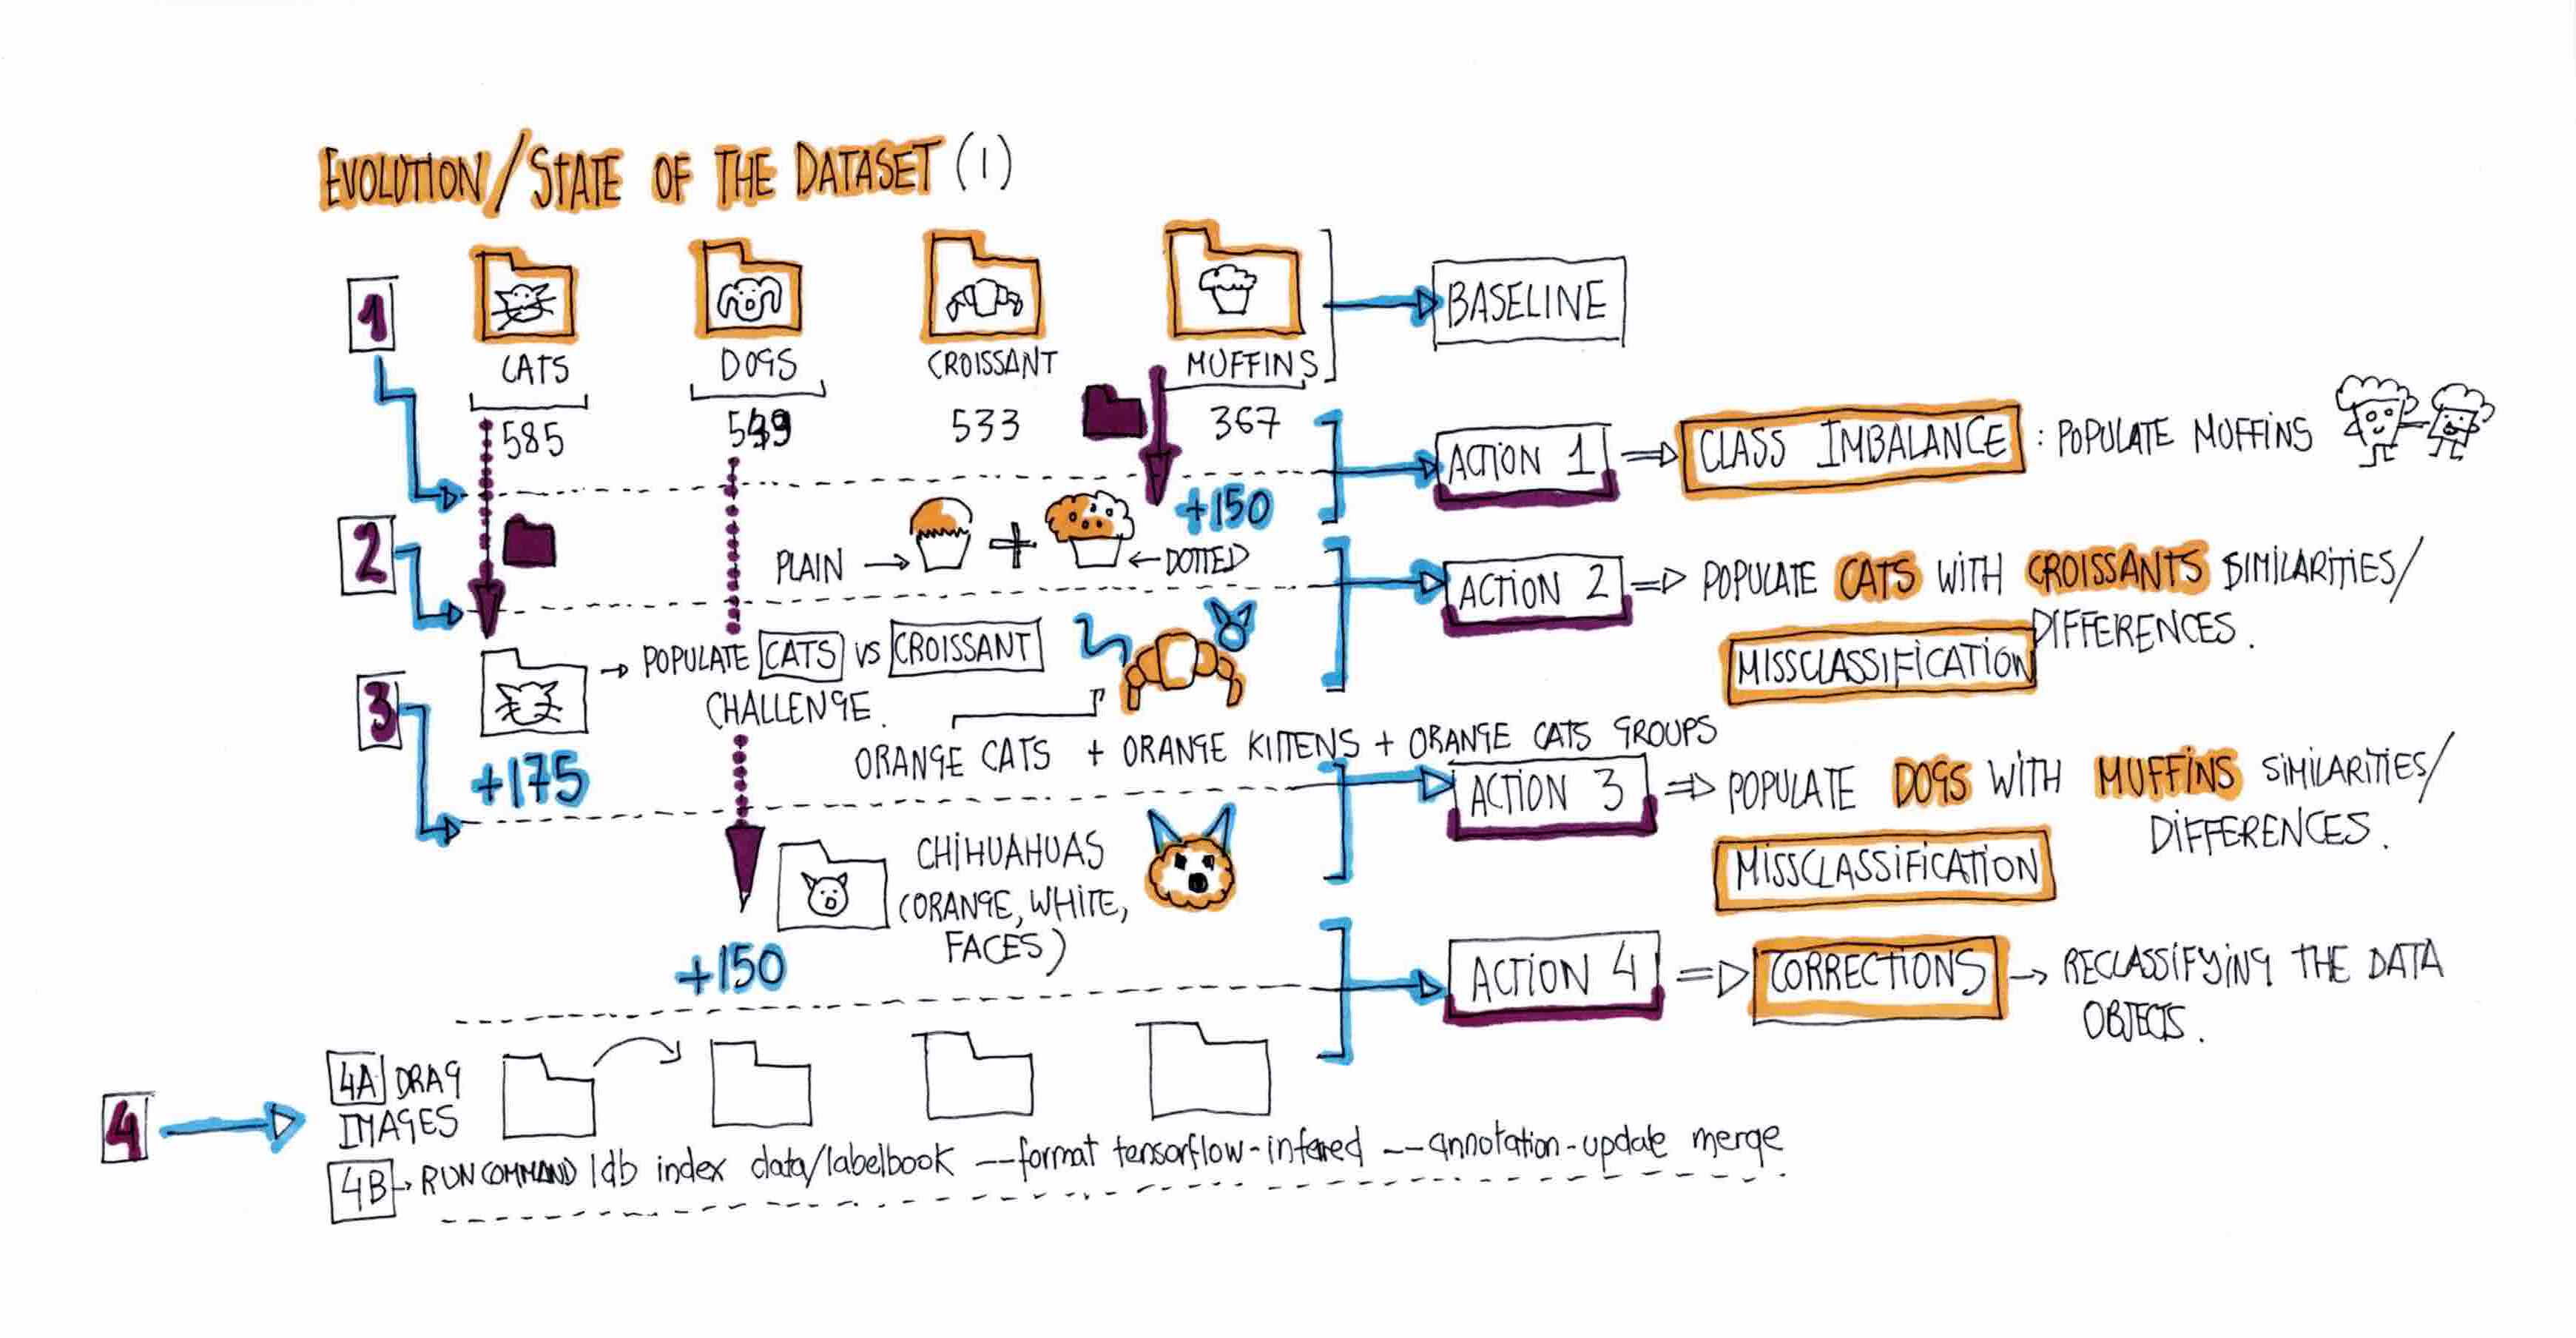 EVOLUTION/STATE OF THE DATASET (1)
1
CATS
DOGS
CROISSANT
MUFFINS
BASELINE
585
533
367
ACTION 1
CLASS IMBALANCE : POPULATE MUFFINS
+150
2
PLAIN
+
DOTTED
ACTION 2
POPULATE CATS WITH CROISSANTS SIMILARITIES/
DIFFERENCES.
MISSCLASSIFICATION
POPULATE CATS VS CROISSANT
CHALLENGE.
3
+175
ORANGE CATS + ORANGE KITTENS + ORANGE CATS GROUPS
ACTION 3
POPULATE DOGS WITH MUFFINS SIMILARITIES/
DIFFERENCES.
MISSCLASSIFICATION
CHIHUAHUAS
(ORANGE, WHITE,
FACES)
+150
ACTION 4
CORRECTIONS
RECLASSIFYING THE DATA
OBJECTS.
4
4A DRAG
IMAGES
4B RUN COMMAND ldb index data/labelbook --format tensorflow-infered --annotation-update merge